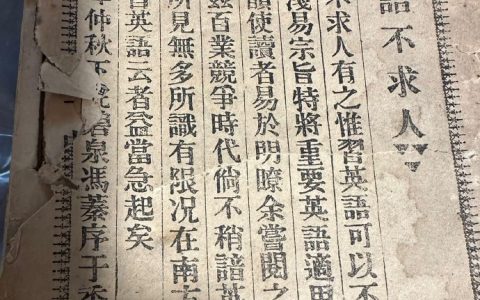 語不求人
不求人有之惟習英語可以不
淺易宗旨特將重要英語適用
使讀者易於明瞭余嘗閱之
茲百業競爭時代倘不稍諳英
所見無多所識有限況在南
習英語云者益當急起矣
仲秋下浣碧泉馮蓁序于香